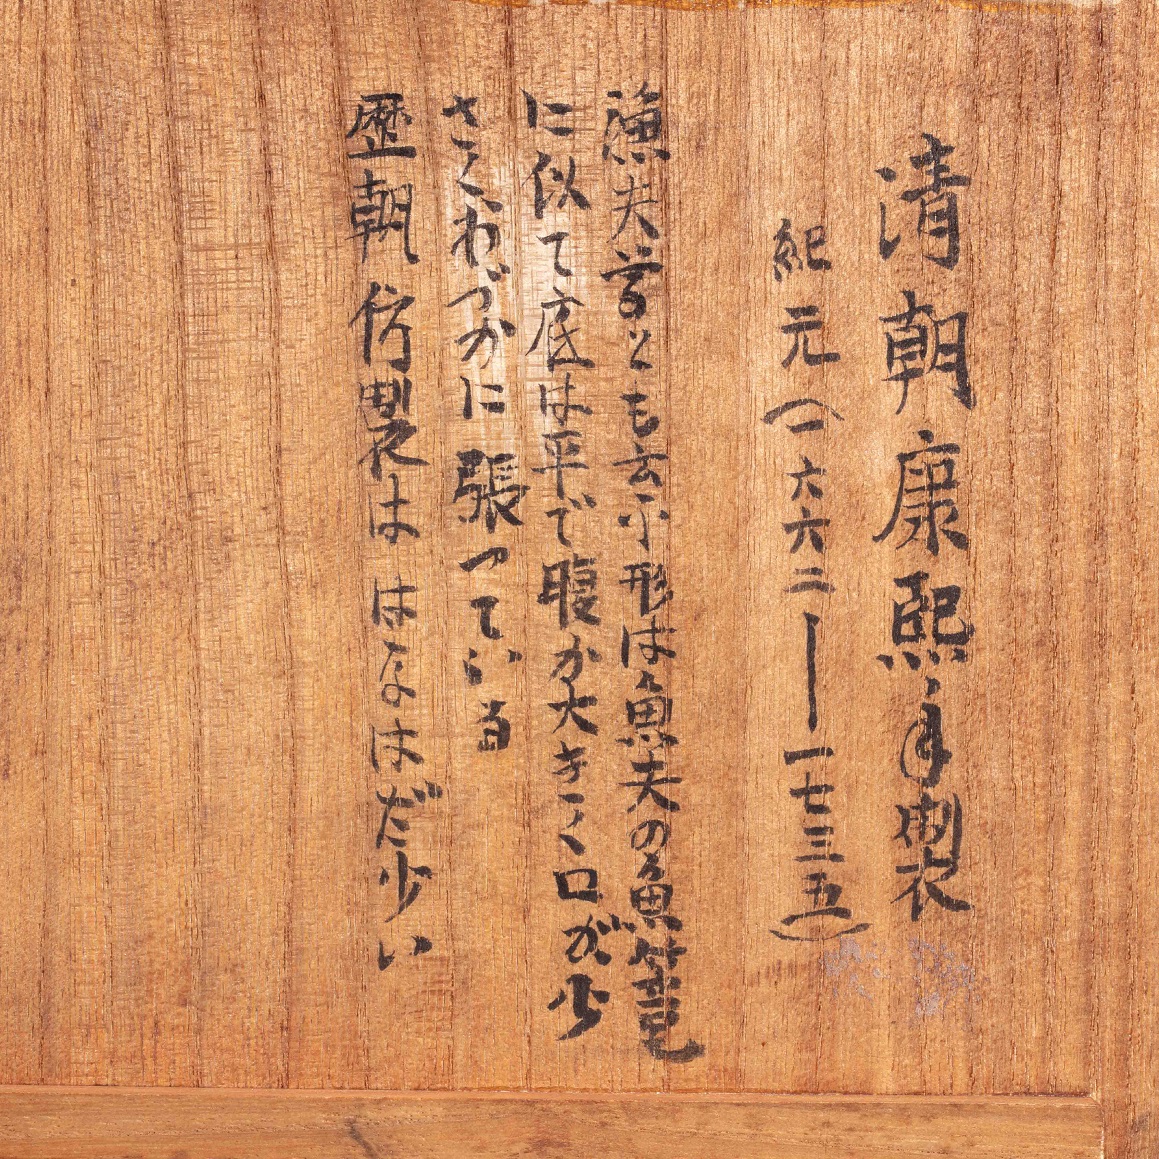 清朝康熙年製
紀元(一六六二ー一七三五)
漁夫尊とも云ふ形は魚夫の魚篭
に似て底は平で腹が大きく口が少
さくわづかに張っている
歴朝倣製は はなはだ少い